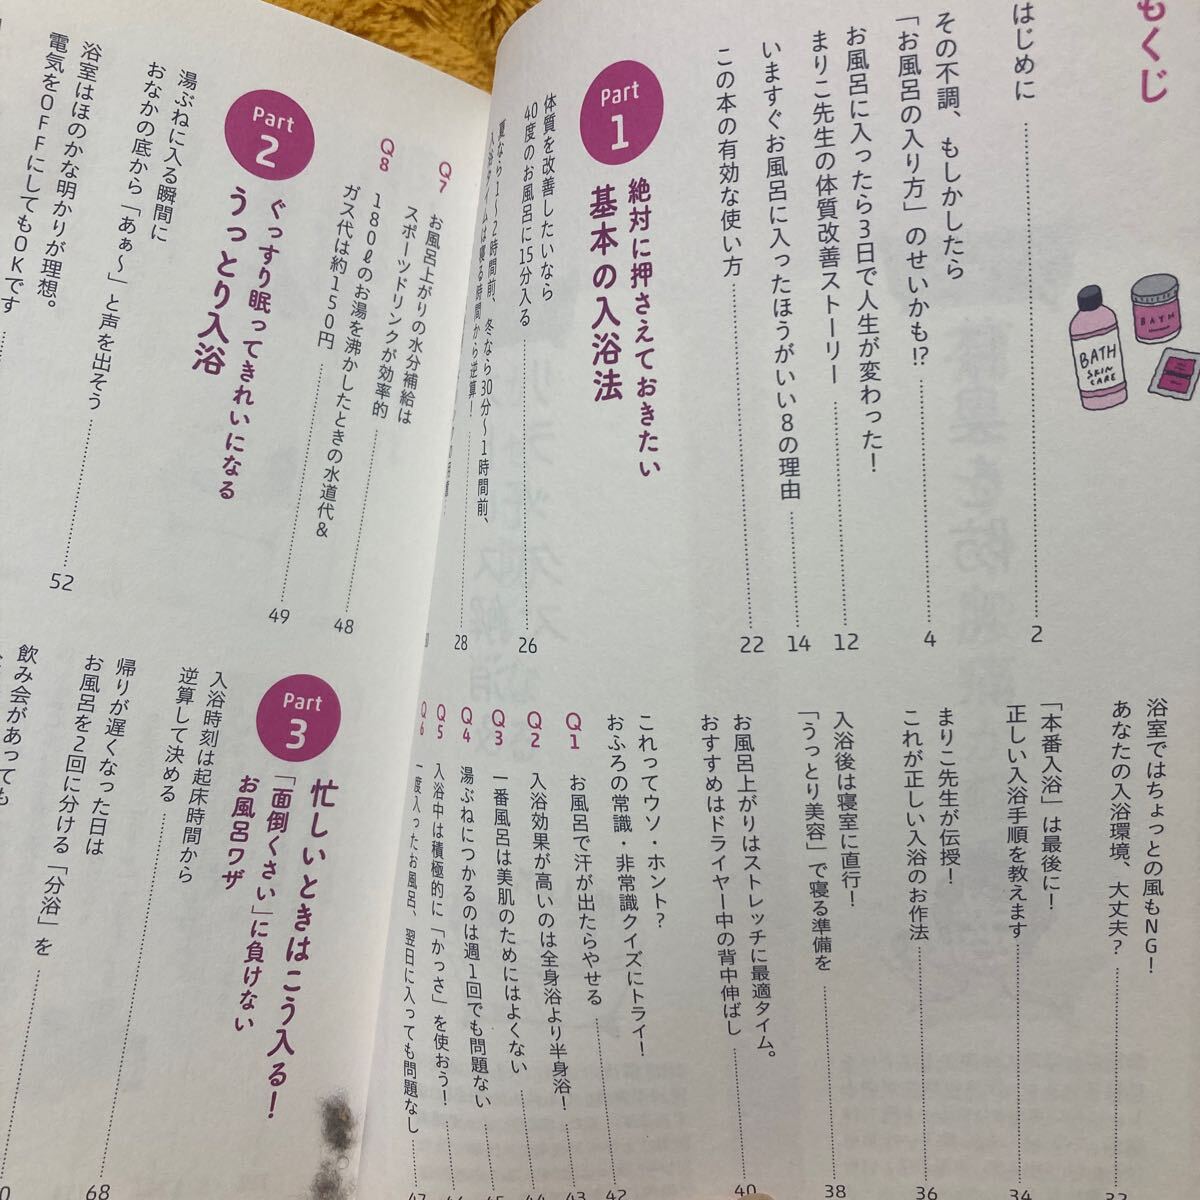 もくじ
はじめに 2
その不調、もしかしたら
「お風呂の入り方」のせいかも!? 4
お風呂に入ったら3日で人生が変わった!
まりこ先生の体質改善ストーリー 12
いますぐお風呂に入ったほうがいい8の理由 14
この本の有効な使い方 22
BATH
SKIN
CARE
BATH
Part
1
絶対に押さえておきたい
基本の入浴法
体質を改善したいなら
40度のお風呂に15分入る 26
夏なら1〜2時間前、冬なら30分〜1時間前、
入浴タイムは寝る時間から逆算! 28
浴室ではちょっとの風もNG!
あなたの入浴環境、大丈夫?
「本番入浴」は最後に!
正しい入浴手順を教えます 34
まりこ先生が伝授!
これが正しい入浴のお作法 36
入浴後は寝室に直行!
「うっとり美容」で寝る準備を 38
お風呂上がりはストレッチに最適タイム。
おすすめはドライヤー中の背中伸ばし 40
これってウソ・ホント?
おふろの常識・非常識クイズにトライ! 42
Q1 お風呂で汗が出たらやせる 43
Q2 入浴効果が高いのは全身浴より半身浴! 44
Q3 一番風呂は美肌のためにはよくない 45
Q4 湯ぶねにつかるのは週1回でも問題ない
Q5 入浴中は積極的に「かっさ」を使おう!
Q6 一度入ったお風呂、翌日に入っても問題なし 47
Q7 お風呂上がりの水分補給は
スポーツドリンクが効率的 48
Q8 180ℓのお湯を沸かしたときの水道代&
ガス代は約150円 49
Part
2
ぐっすり眠ってきれいになる
うっとり入浴
湯ぶねに入る瞬間に
おなかの底から「あぁ〜」と声を出そう 52
浴室はほのかな明かりが理想。
電気をOFFにしてもOKです
Part
3
忙しいときはこう入る!
「面倒くさい」に負けない
お風呂ワザ
入浴時刻は起床時間から
逆算して決める
帰りが遅くなった日は
お風呂を2回に分ける「分浴」を 68
飲み会があっても